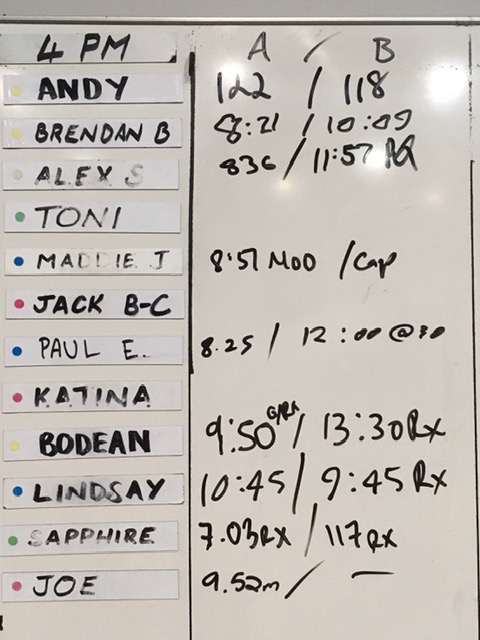 4 PM A / B
ANDY 122 / 118
BRENDAN B 8:21 / 10:09
ALEX S 836 / 11:57 RX
TONI
MADDIE J 8:51 MOD / Cap
JACK B-C
PAUL E. 8.25 / 12:00 @
KATINA
BODEAN 9:50 / 13:30 Rx
LINDSAY 10:45 / 9:45 Rx
SAPPHIRE 7.03RX / 117 RX
JOE 9.52m / —